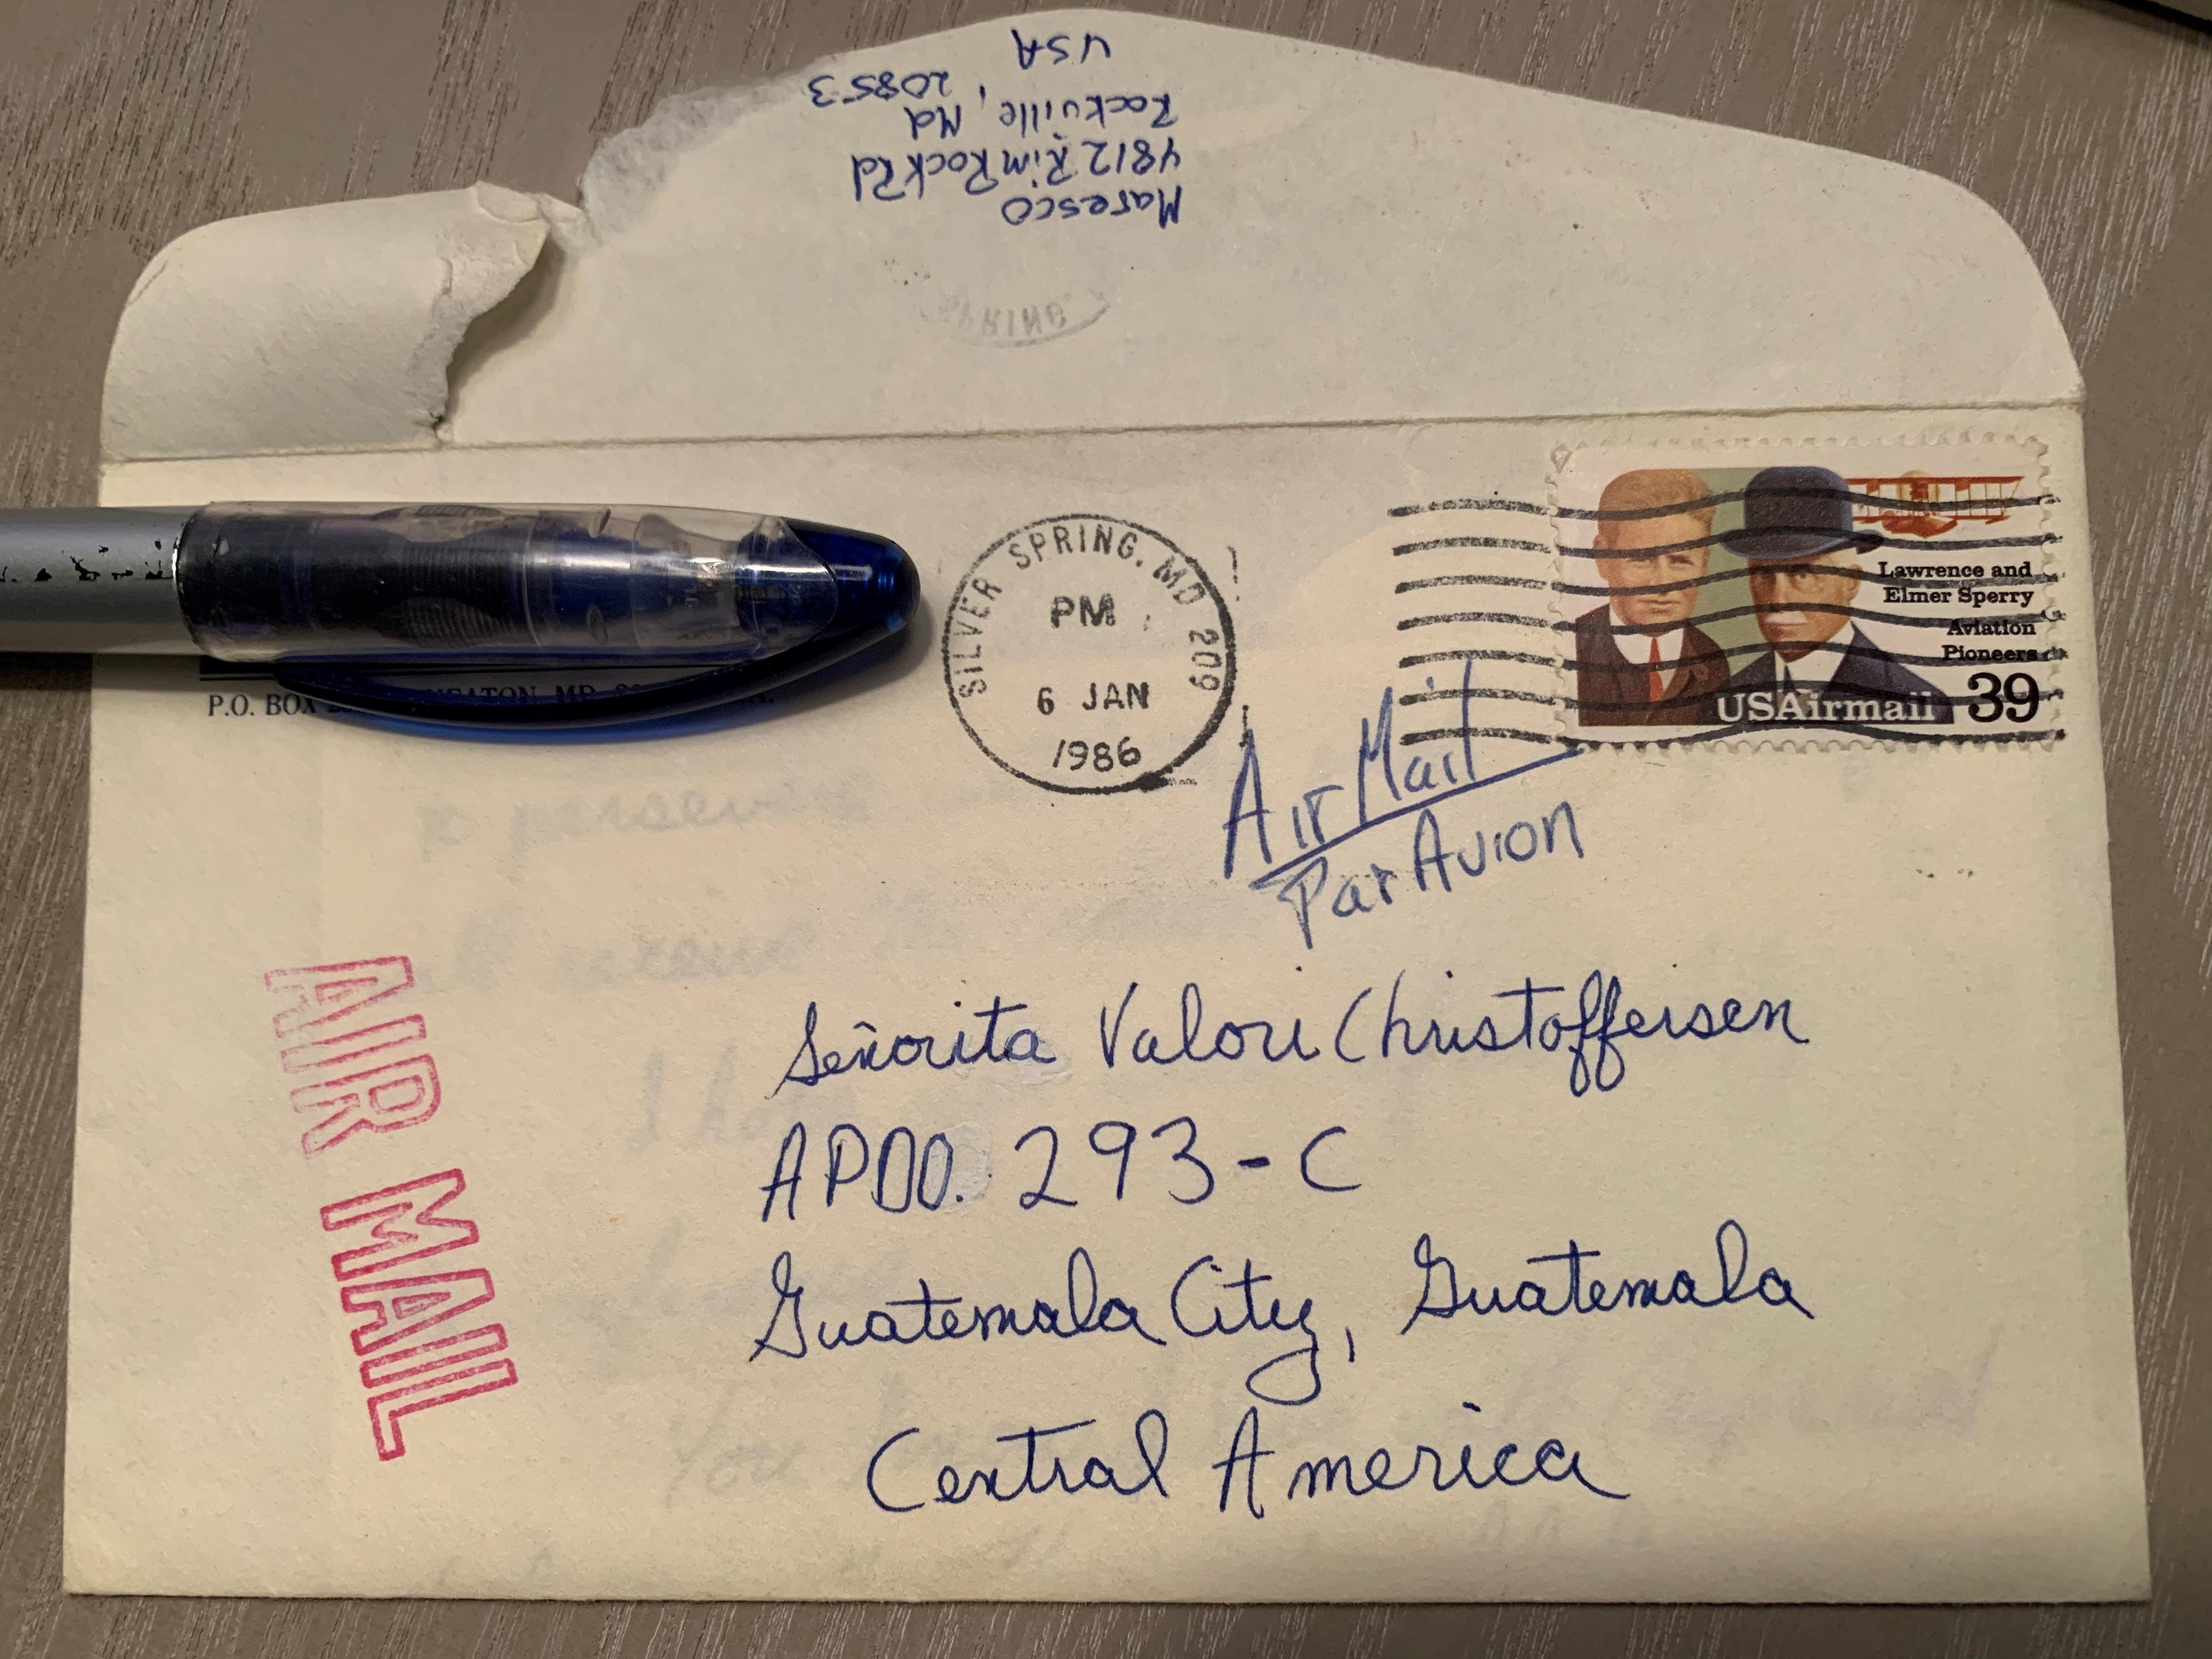 Maresco
4812 Rim Rock Rd
Rockville, Md
20853
USA
SPRING
SILVER SPRING, MD 209
PM
6 JAN
1986
Lawrence and
Elmer Sperry
Aviation
Pioneers
USAirmail 39
P.O. BOX
Air Mail
Par Avion
AIR MAIL
Señorita Valori Christoffersen
APDO. 293-C
Guatemala City, Guatemala
Central America